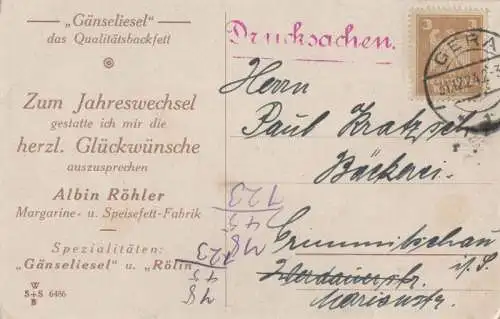 „Gänseliesel"
das Qualitätsbackfett
Zum Jahreswechsel
gestatte ich mir die
herzl. Glückwünsche
auszusprechen
Albin Röhler
Margarine- u. Speisefett-Fabrik
Spezialitäten:
„Gänseliesel" u. „Rölin"
W
S+S 6486
B
Drucksachen.
3 3
GERA
Herrn
Paul Kratzsch
Bäckerei
Crimmitschau
i/S.
Werdauerstr.
Marienstr.
123
45
78
123
45
78